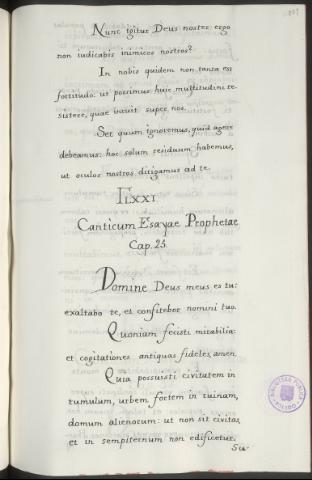 Nunc igitur Deus noster ergo
non iudicabis inimicos nostros?
In nobis quidem non tanta est
fortitudo: ut possimus huic multitudini re-
sistere, quae irruit super nos.
Sed quum ignoremus, quid agere
debeamus: hoc solum residuum habemus,
ut oculos nostros dirigamus ad te.
LXXI
Canticum Esayae Prophetae
Cap. 25.
Domine Deus meus es tu:
exaltabo te, et confitebor nomini tuo.
Quoniam fecisti mirabilia:
et cogitationes antiquas fideles, amen.
Quia possuisti civitatem in
tumulum, urbem fortem in ruinam,
domum alienorum: ut non sit civitas,
et in sempiternum non edificetur.